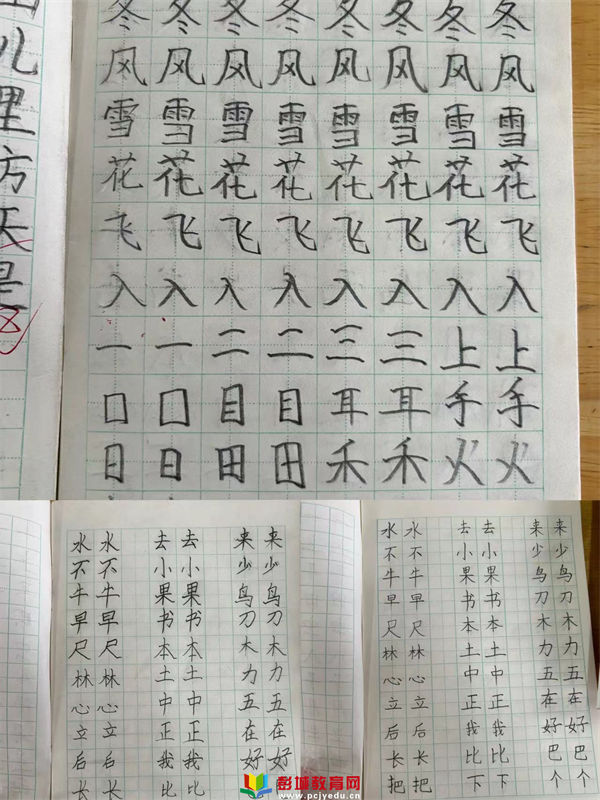 儿
里
方
是
冬 冬 冬 冬 冬 冬 冬 冬
风 风 风 风 风 风 风 风
雪 雪 雪 雪 雪 雪 雪 雪
花 花 花 花 花 花 花 花
飞 飞 飞 飞 飞 飞 飞 飞
入 入 入 入 入 入 入 入
一 一 二 二 三 三 上 上
口 口 目 目 耳 耳 手 手
日 日 田 田 禾 禾 火 火
水 水 去 去 来 来
不 不 小 小 少 少
牛 牛 果 果 鸟 鸟
早 早 书 书 刀 刀
尺 尺 本 本 木 木
林 林 土 土 力 力
心 心 中 中 五 五
立 立 正 正 在 在
后 后 我 我 好 好
长 长 比 比
水 水 去 去 来 来
不 不 小 小 少 少
牛 牛 果 果 鸟 鸟
早 早 书 书 刀 刀
尺 尺 本 本 木 木
林 林 土 土 力 力
心 心 中 中 五 五
立 立 正 正 在 在
后 后 我 我 好 好
长 长 比 比 巴 巴
把 把 下 下 个 个
彭城教育网
www.pcjyedu.cn